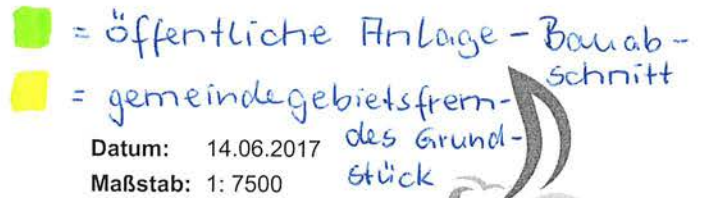 = öffentliche Anlage - Bauab-
schnitt
= gemeindegebietsfrem-
des Grund-
stück
Datum: 14.06.2017
Maßstab: 1: 7500